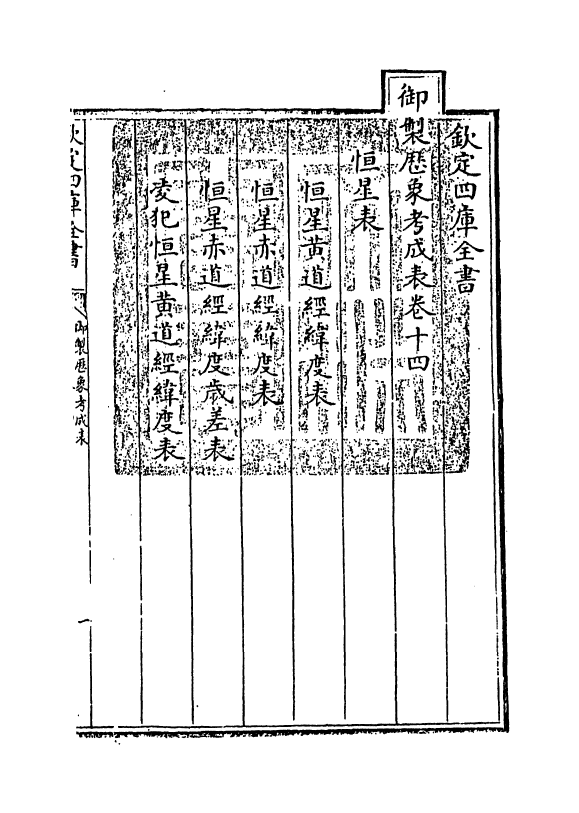 欽定四庫全書
御製厯象考成表卷十四
恒星表
恒星黄道經緯度表
恒星赤道經緯度表
恒星赤道經緯度歲差表
凌犯恒星黄道經緯度表
欽定四庫全書
御製厯象考成表
一